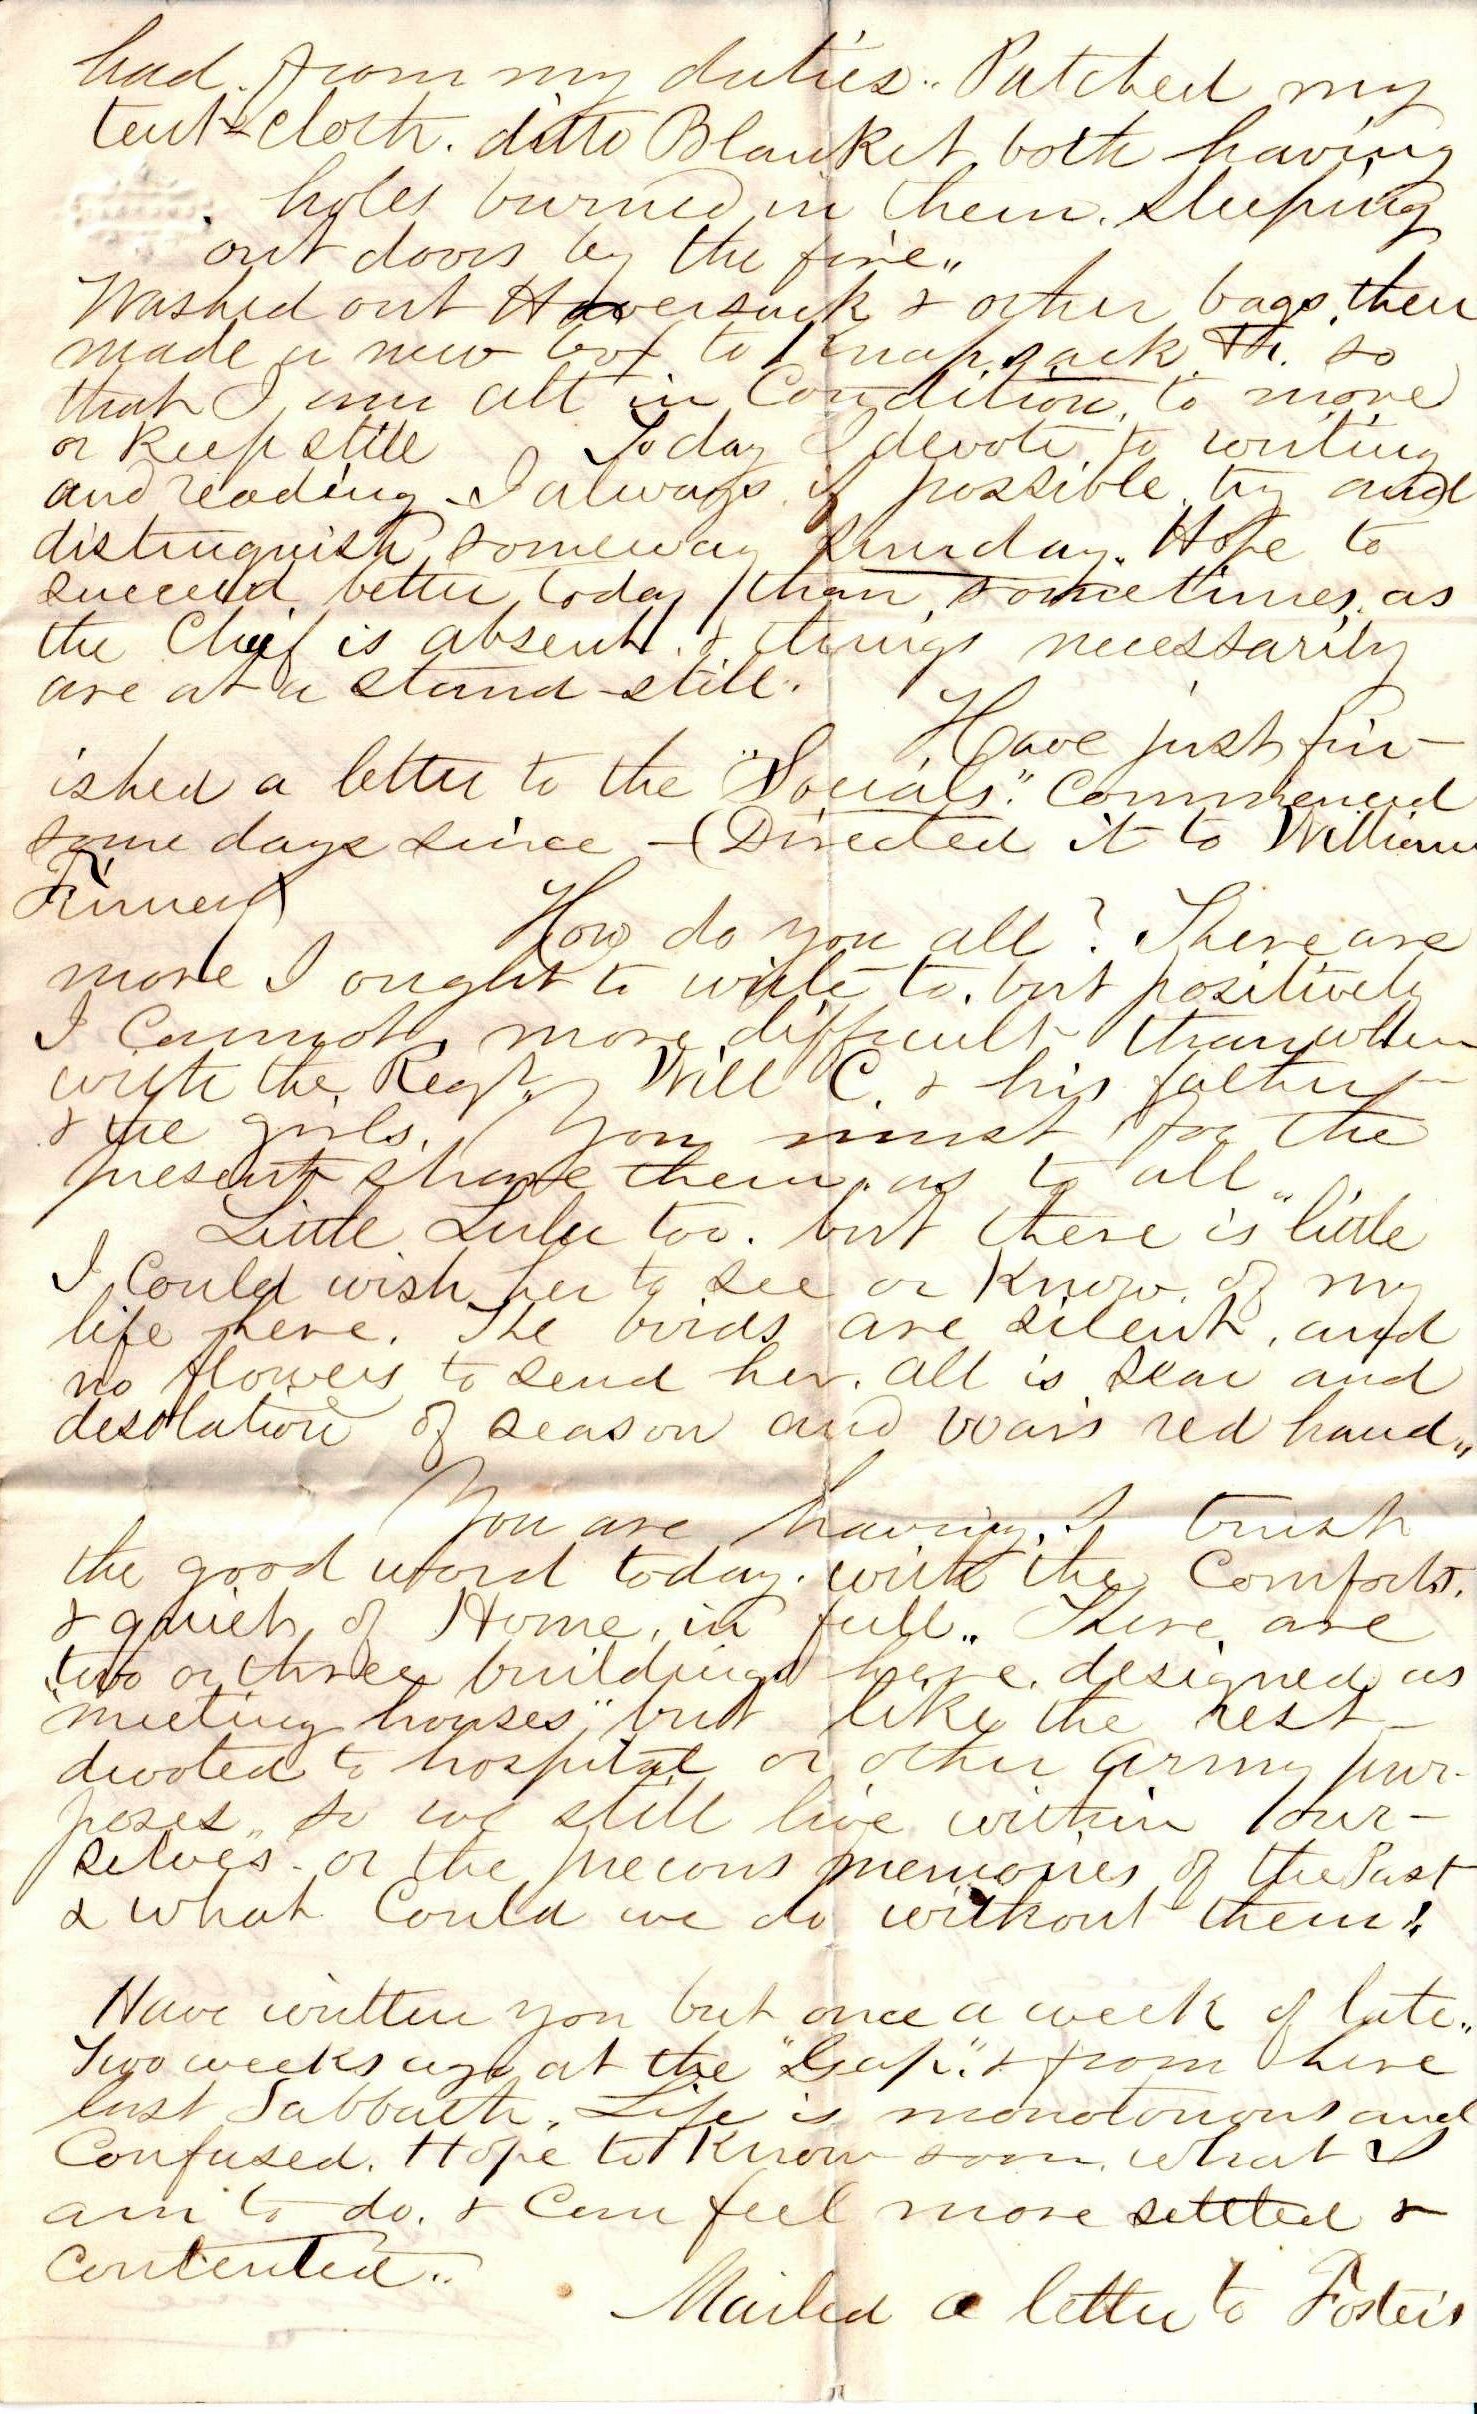 had from my duties.. Patched my
tent-cloth. ditto Blanket, both having
holes burned in them. sleeping
out doors by the fire,,
Washed out Haversack & other bags, then
made a new box to Knapsack so
that I am all in Condition, to move
or keep still Today I devote to writing
and reading. I always if possible, try and
distinguish someway Sunday. Hope to
succeed better today than sometimes, as
the Chief is absent. & things necessarily
are at a stand-still.
Have just fin-
ished a letter to the "Socials." Commenced
some days since - (Directed it to William
How do you all? There are
more I ought to write to. but positively
I Cannot, more difficult than when
with the Regt. Will C. & his father -
& the girls. You must for the
present share them, as to all,,
Little Lulu too. but there is little
I Could wish her to see or know, of my
life here. The birds are silent, and
no flowers to send her. all is sear and
desolation of season and war's red hand,,
You are having, I trust
the good word today. with the Comforts.
& quiet, of Home, in full,, There are
two or three buildings here, designed as
"meeting houses," but like the rest -
devoted to hospital or other army pur-
poses,, so we still live within our-
selves - or the precous memories of the Past
& what Could we do without them!
Have written you but once a week of late,,
Two weeks ago at the "Gap." & from here
last Sabbath. Life is monotonous and
Confused. Hope to Know soon, what I
am to do. & Can feel more settled &
Contented..
Mailed a letter to Foster's